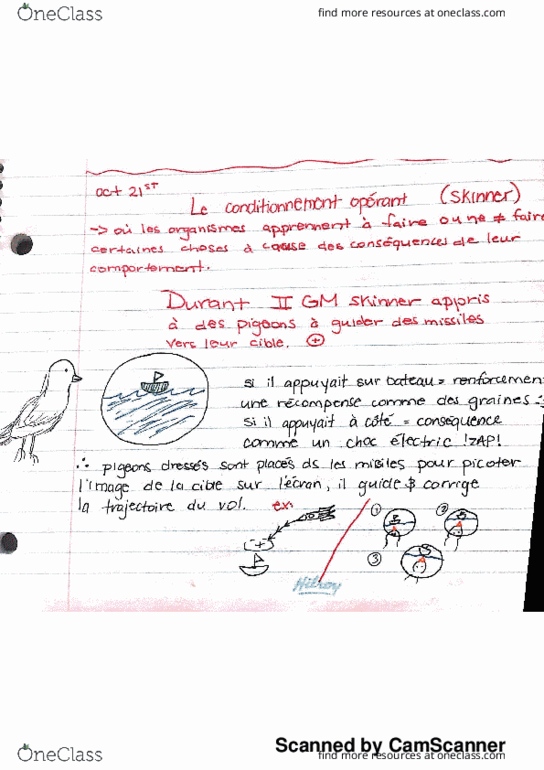 OneClass
find more resources at oneclass.com
oct 21ST
Le conditionnement opérant (Skinner)
-> où les organismes apprennent à faire ou ne ≠ faire
certaines choses à cause des conséquences de leur
comportement.
Durant II GM skinner appris
à des pigeons à guider des missiles
vers leur cible. +
si il appuyait sur bateau = renforcemen
une récompense comme des graines
si il appuyait à côté = conséquence
comme un choc électric !ZAP!
∴ pigeons dressés sont placés ds les missiles pour picoter
l'image de la cible sur l'écran, il guide & corrige
la trajectoire du vol. ex
1 2
+
3
Hilroy
Scanned by CamScanner
OneClass
find more resources at oneclass.com